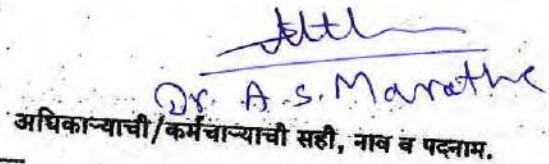 Dr. A. S. Marathe
अधिकाऱ्याची/कर्मचाऱ्याची सही, नाव व पदनाम.